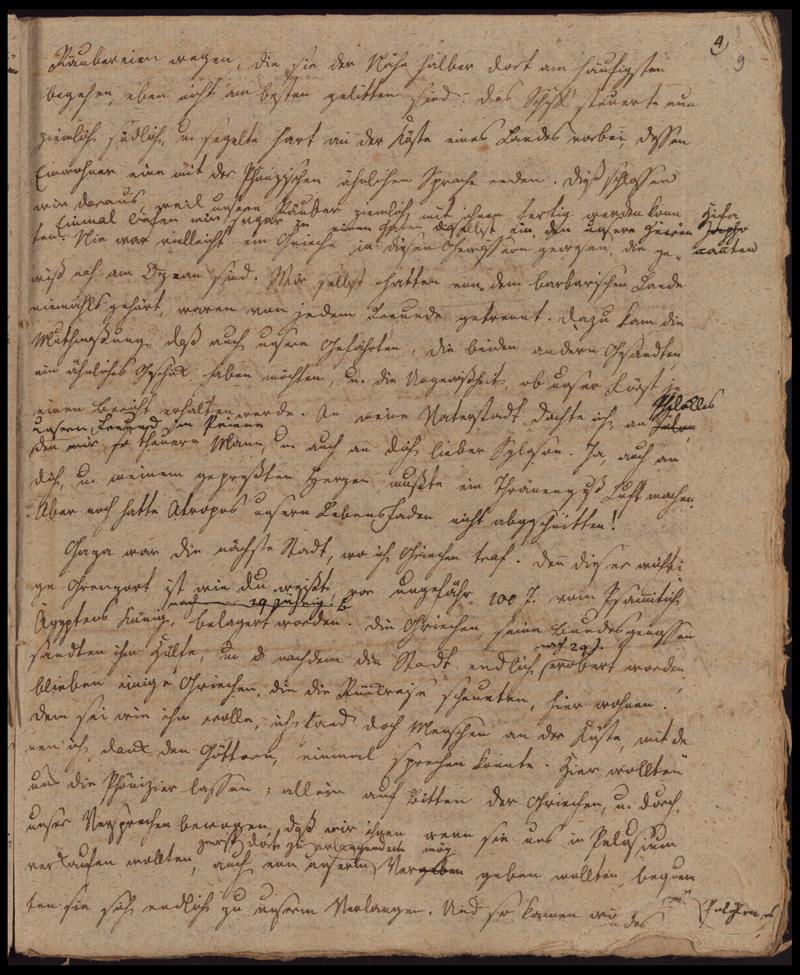 4) 9
Räubereien wegen, die sie der Nähe halber dort am häufigsten
begehen, eben nicht am besten gelitten sind. Das Schiff steuerte nun
ziemlich südlich, u. segelte hart an der Küste eines Landes vorbei, dessen
Einwohner eine mit der Phönizischen ähnlichen Sprache reden. Dieß schlossen
wir daraus, weil unsere Räuber ziemlich mit ihnen fertig werden konn
Einmal liefen wir sogar zu einem Hafen daselbst ein, den unsere Herren
nannten
ten. Nie war vielleicht ein Grieche in diesen Gewässern gewesen, die ge-
wiß noch am Ozean sind. Wir selbst hatten von dem barbarischen Lande
niemahls gehört, waren von jedem Freunde getrennt. Dazu kam die
Muthmaßung, daß auch unsere Gefährten, die beiden andern Gesandten
ein ähnliches Geschick haben möchten, u. die Ungewißheit, ob unser Fürst je
einen Bericht erhalten werde. An meine Vaterstadt dachte ich, an
unsern Freund von Priene
den mir so theuern Mann, u. auch an dich lieber Syloson. Ja, auch an
dich, u. meinem gepreßten Herzen mußte ein Thränenguß Luft machen.
Aber noch hatte Atropos unsern Lebensfaden nicht abgeschnitten!
Gaza war die nächste Stadt, wo ich Griechen traf. Denn dieser wichti
ge Grenzort ist wie du weißt, vor ungefähr 100 J. vom Psammitich,
Ägyptens König, belagert worden. Die Griechen, seine Bundesgenossen
sandten ihm Hülfe, und nachdem die Stadt endlich nach 29 J. erobert worden,
blieben einige Griechen, die die Rückreise scheuten, hier wohnen.
Dem sei wie ihm wolle, ich fand doch Menschen an der Küste, mit de
nen ich, dank den Göttern, einmal sprechen konnte. Hier wollten
uns die Phönizier lassen; allein auf Bitten der Griechen, u. durch
unser Versprechen bewogen, daß wir ihnen wenn sie uns in Pelusium
verkaufen wollten, auch von unserm geben wollten, bequem
ten sie sich endlich zu unserm Verlangen. Und so kamen wir